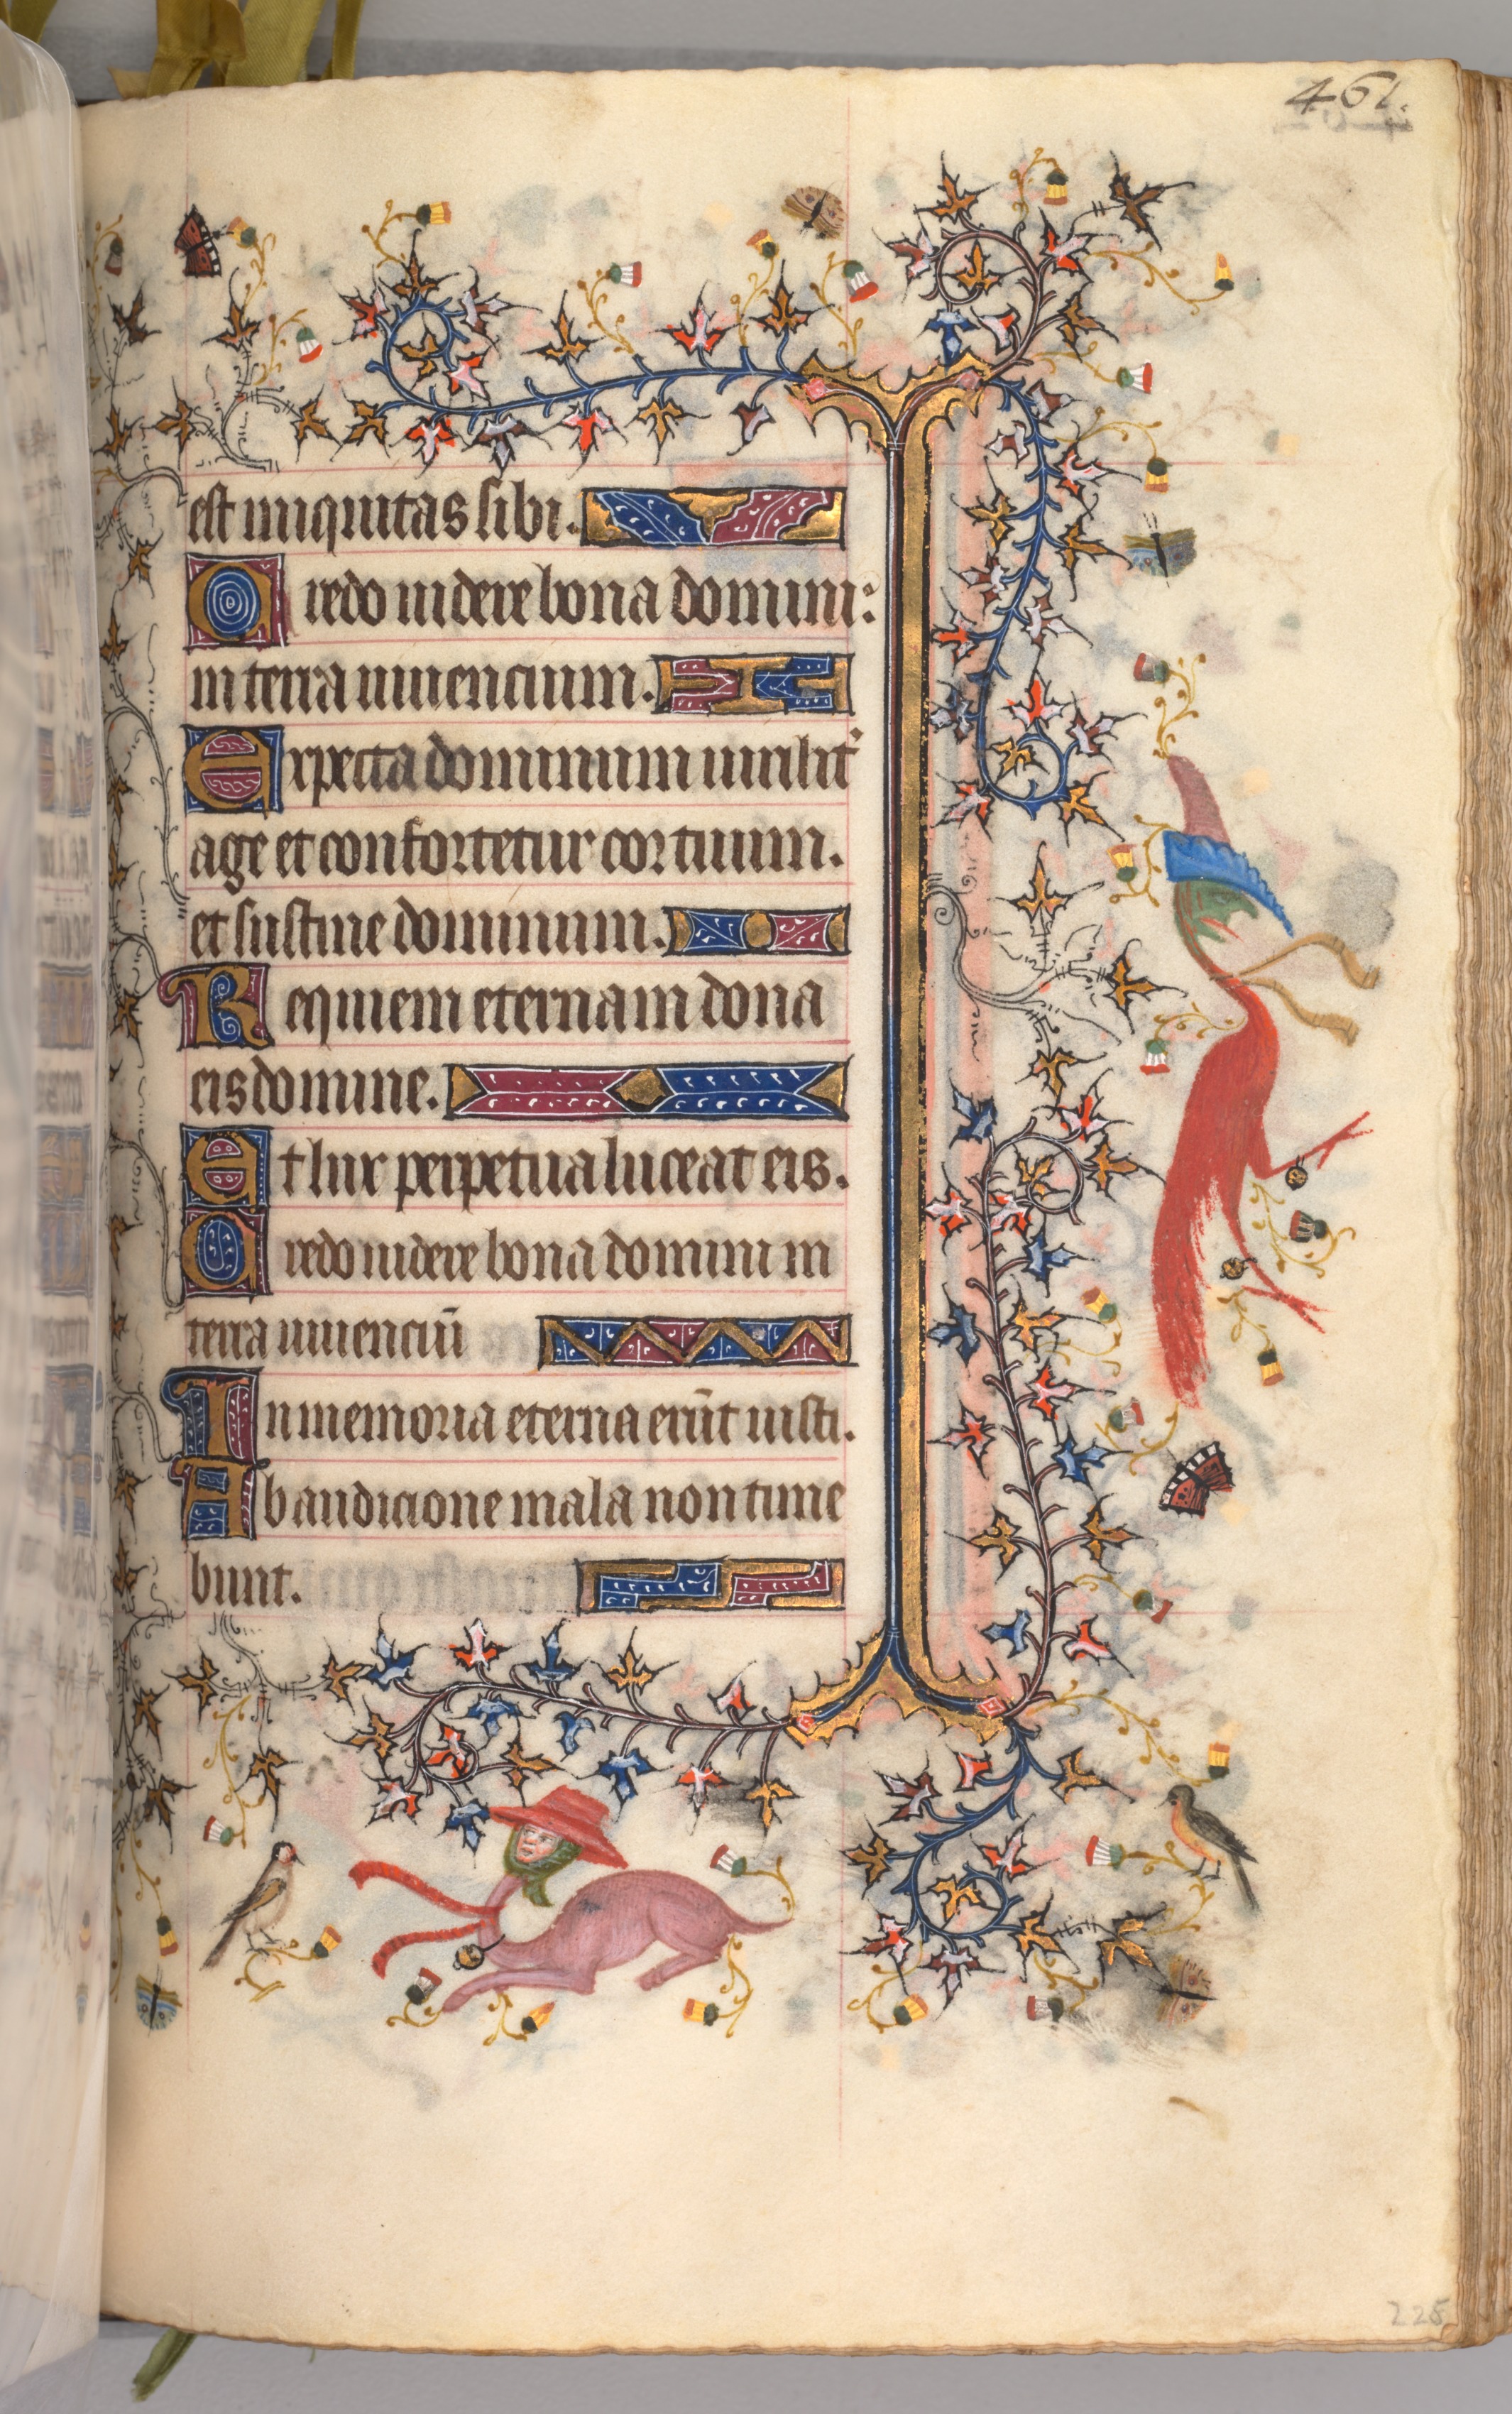 461.
est iniquitas sibi.
Credo uidere bona domini:
in terra uiuencium.
Expecta dominum uirilit'
age et confortetur cor tuum.
et sustine dominum.
Requiem eternam dona
eis domine.
Et lux perpetua luceat eis.
Credo uidere bona domini in
terra uiuenciū
In memoria eterna erūt iusti.
Ab audicione mala non time
bunt.
225